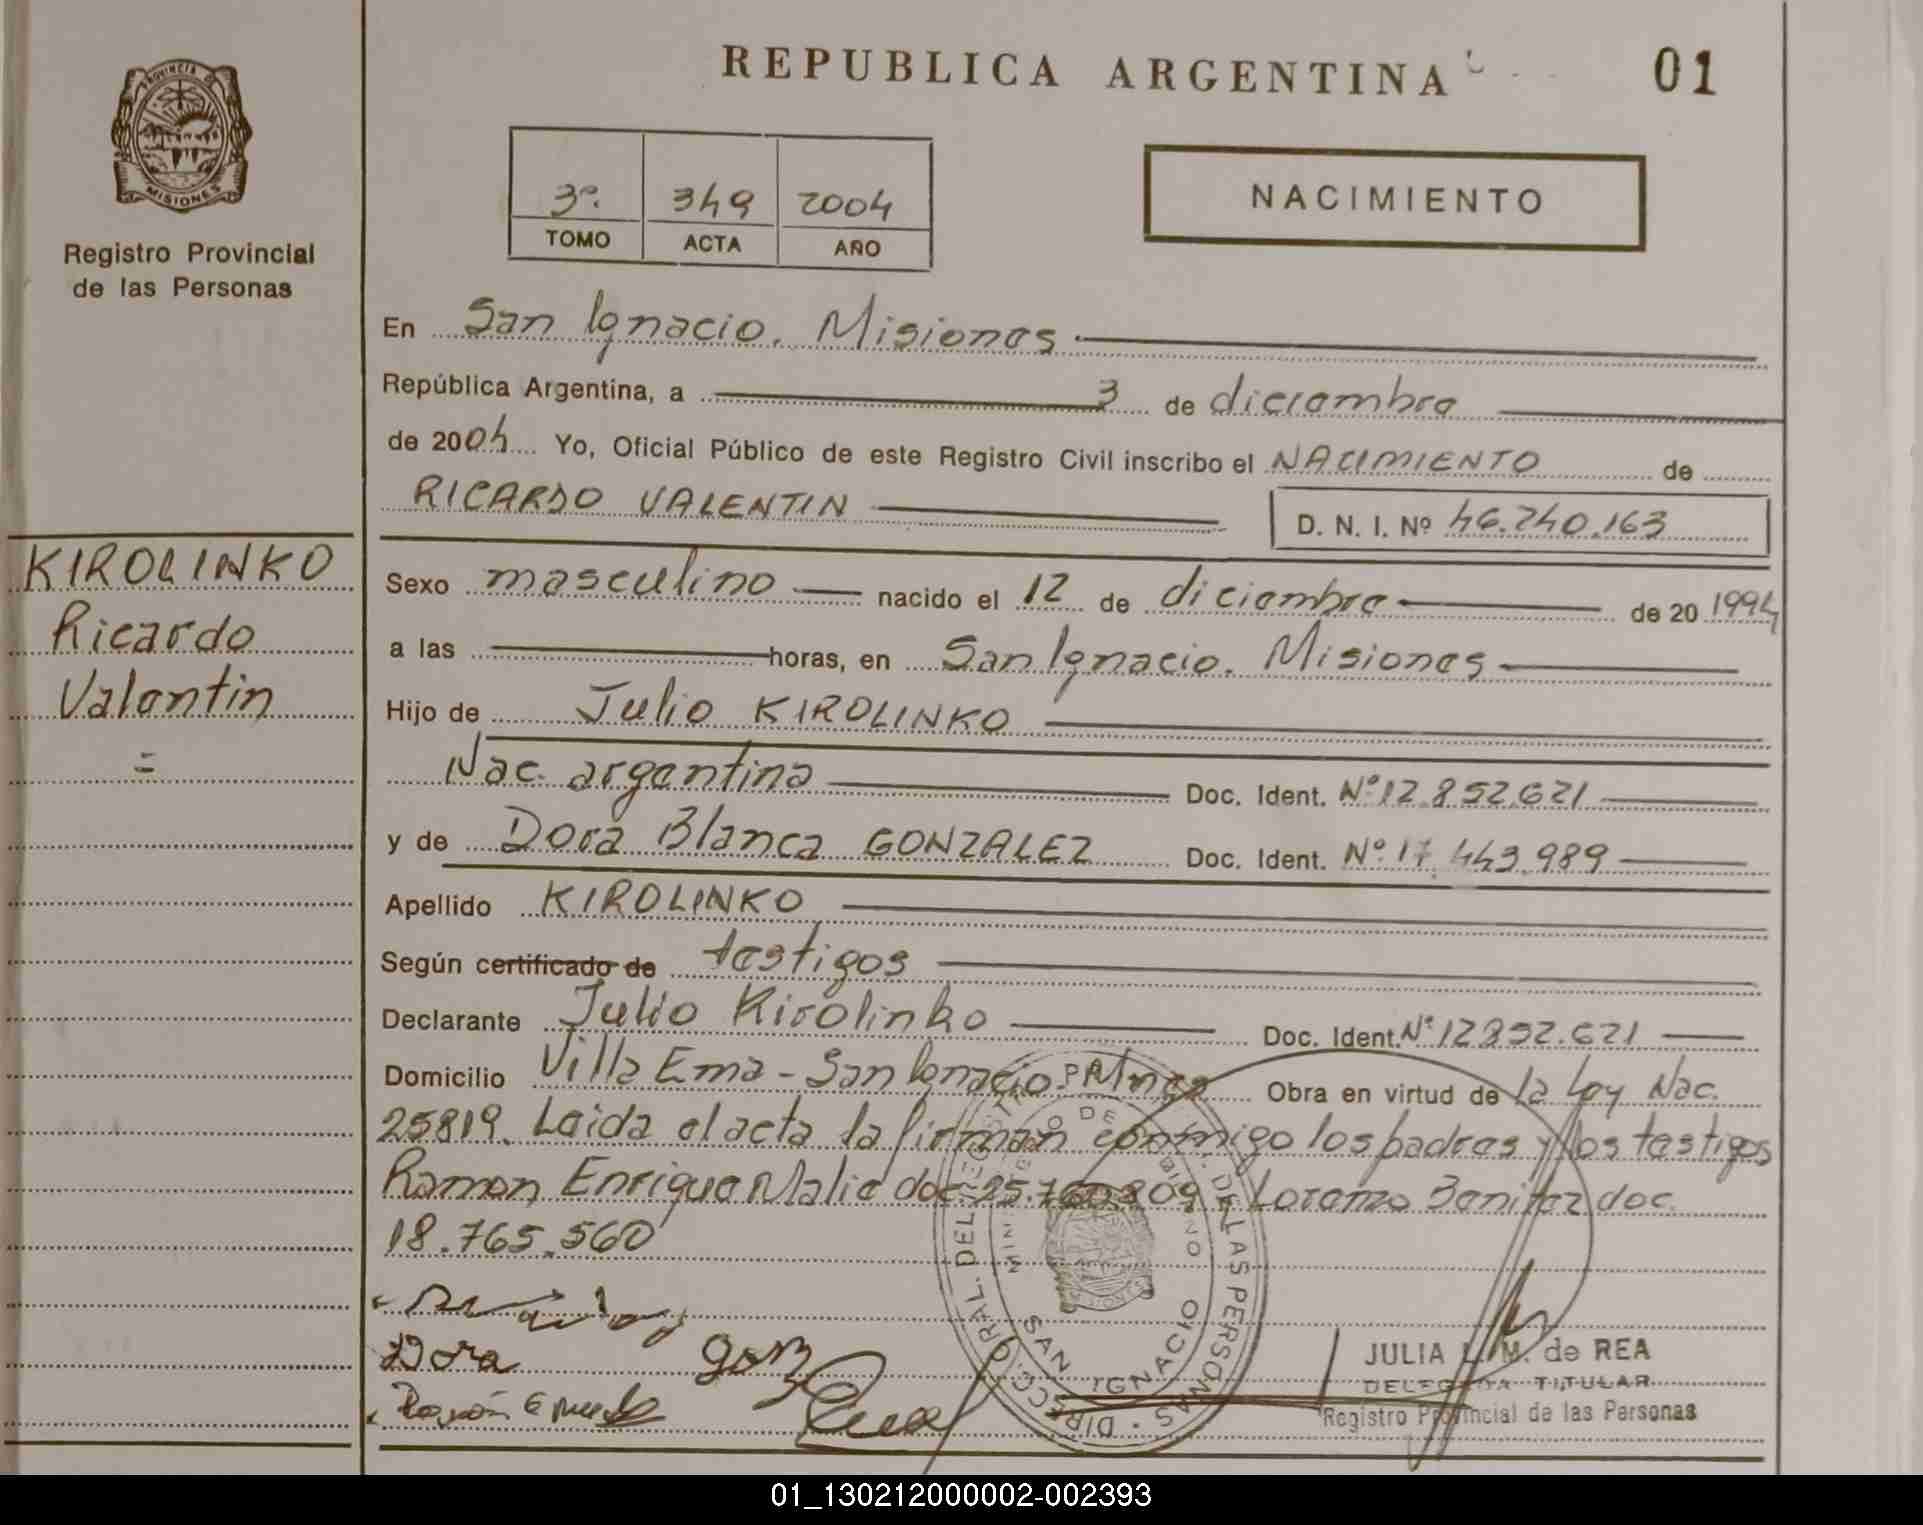 REPUBLICA ARGENTINA
01
PROVINCIA DE
MISIONES
Registro Provincial
de las Personas
3º. 349 2004
TOMO ACTA AÑO
NACIMIENTO
En San Ignacio. Misiones
República Argentina, a 3 de diciembre
de 2004 Yo, Oficial Público de este Registro Civil inscribo el NACIMIENTO de
RICARDO VALENTIN D. N. I. Nº 46.240.163
KIROLINKO
Ricardo
Valentin
=
Sexo masculino nacido el 12 de diciembre de 20 1994
a las horas, en San Ignacio. Misiones
Hijo de Julio KIROLINKO
Nac. argentina Doc. Ident. Nº 12.852.621
y de Dora Blanca GONZALEZ Doc. Ident. Nº. 17.443.989
Apellido KIROLINKO
Según certificado de testigos
Declarante Julio Kirolinko Doc. Ident. Nº 12852.621
Domicilio Villa Ema - San Ignacio. Mnes Obra en virtud de la Ley Nac.
25819. Leida el acta la firman conmigo los padres y los testigos
Ramon Enrique doc. 25.760.809 Lorenzo Benitez doc.
18.765.560
Dora Gonz
Ramón
DIRECC. GRAL. DEL REGISTRO PROV. DE LAS PERSONAS
SAN IGNACIO
JULIA L. M. de REA
DELEGADA TITULAR
Registro Provincial de las Personas
01_130212000002-002393